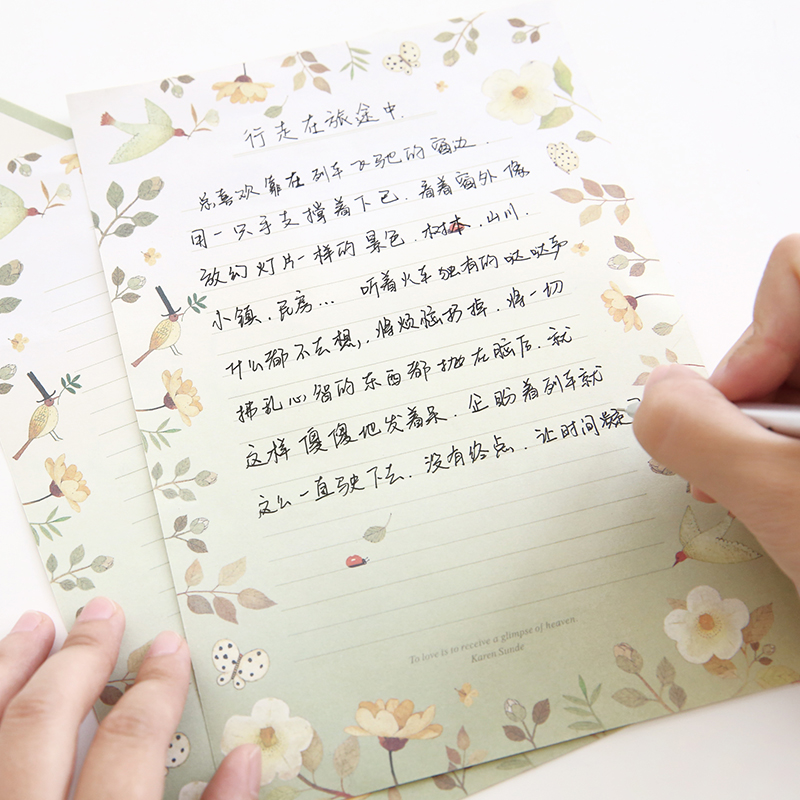 行走在旅途中.
总喜欢靠在列车飞驰的窗边.
用一只手支撑着下巴.看着窗外像
放幻灯片一样的景色.树木.山川.
小镇.民房... 听着火车独有的哒哒声
什么都不去想,.将烦恼扔掉.将一切
拂乱心智的东西都抛在脑后.就
这样傻傻地发着呆.企盼着列车就
这么一直驶下去.没有终点.让时间凝
To love is to receive a glimpse of heaven.
Karen Sunde